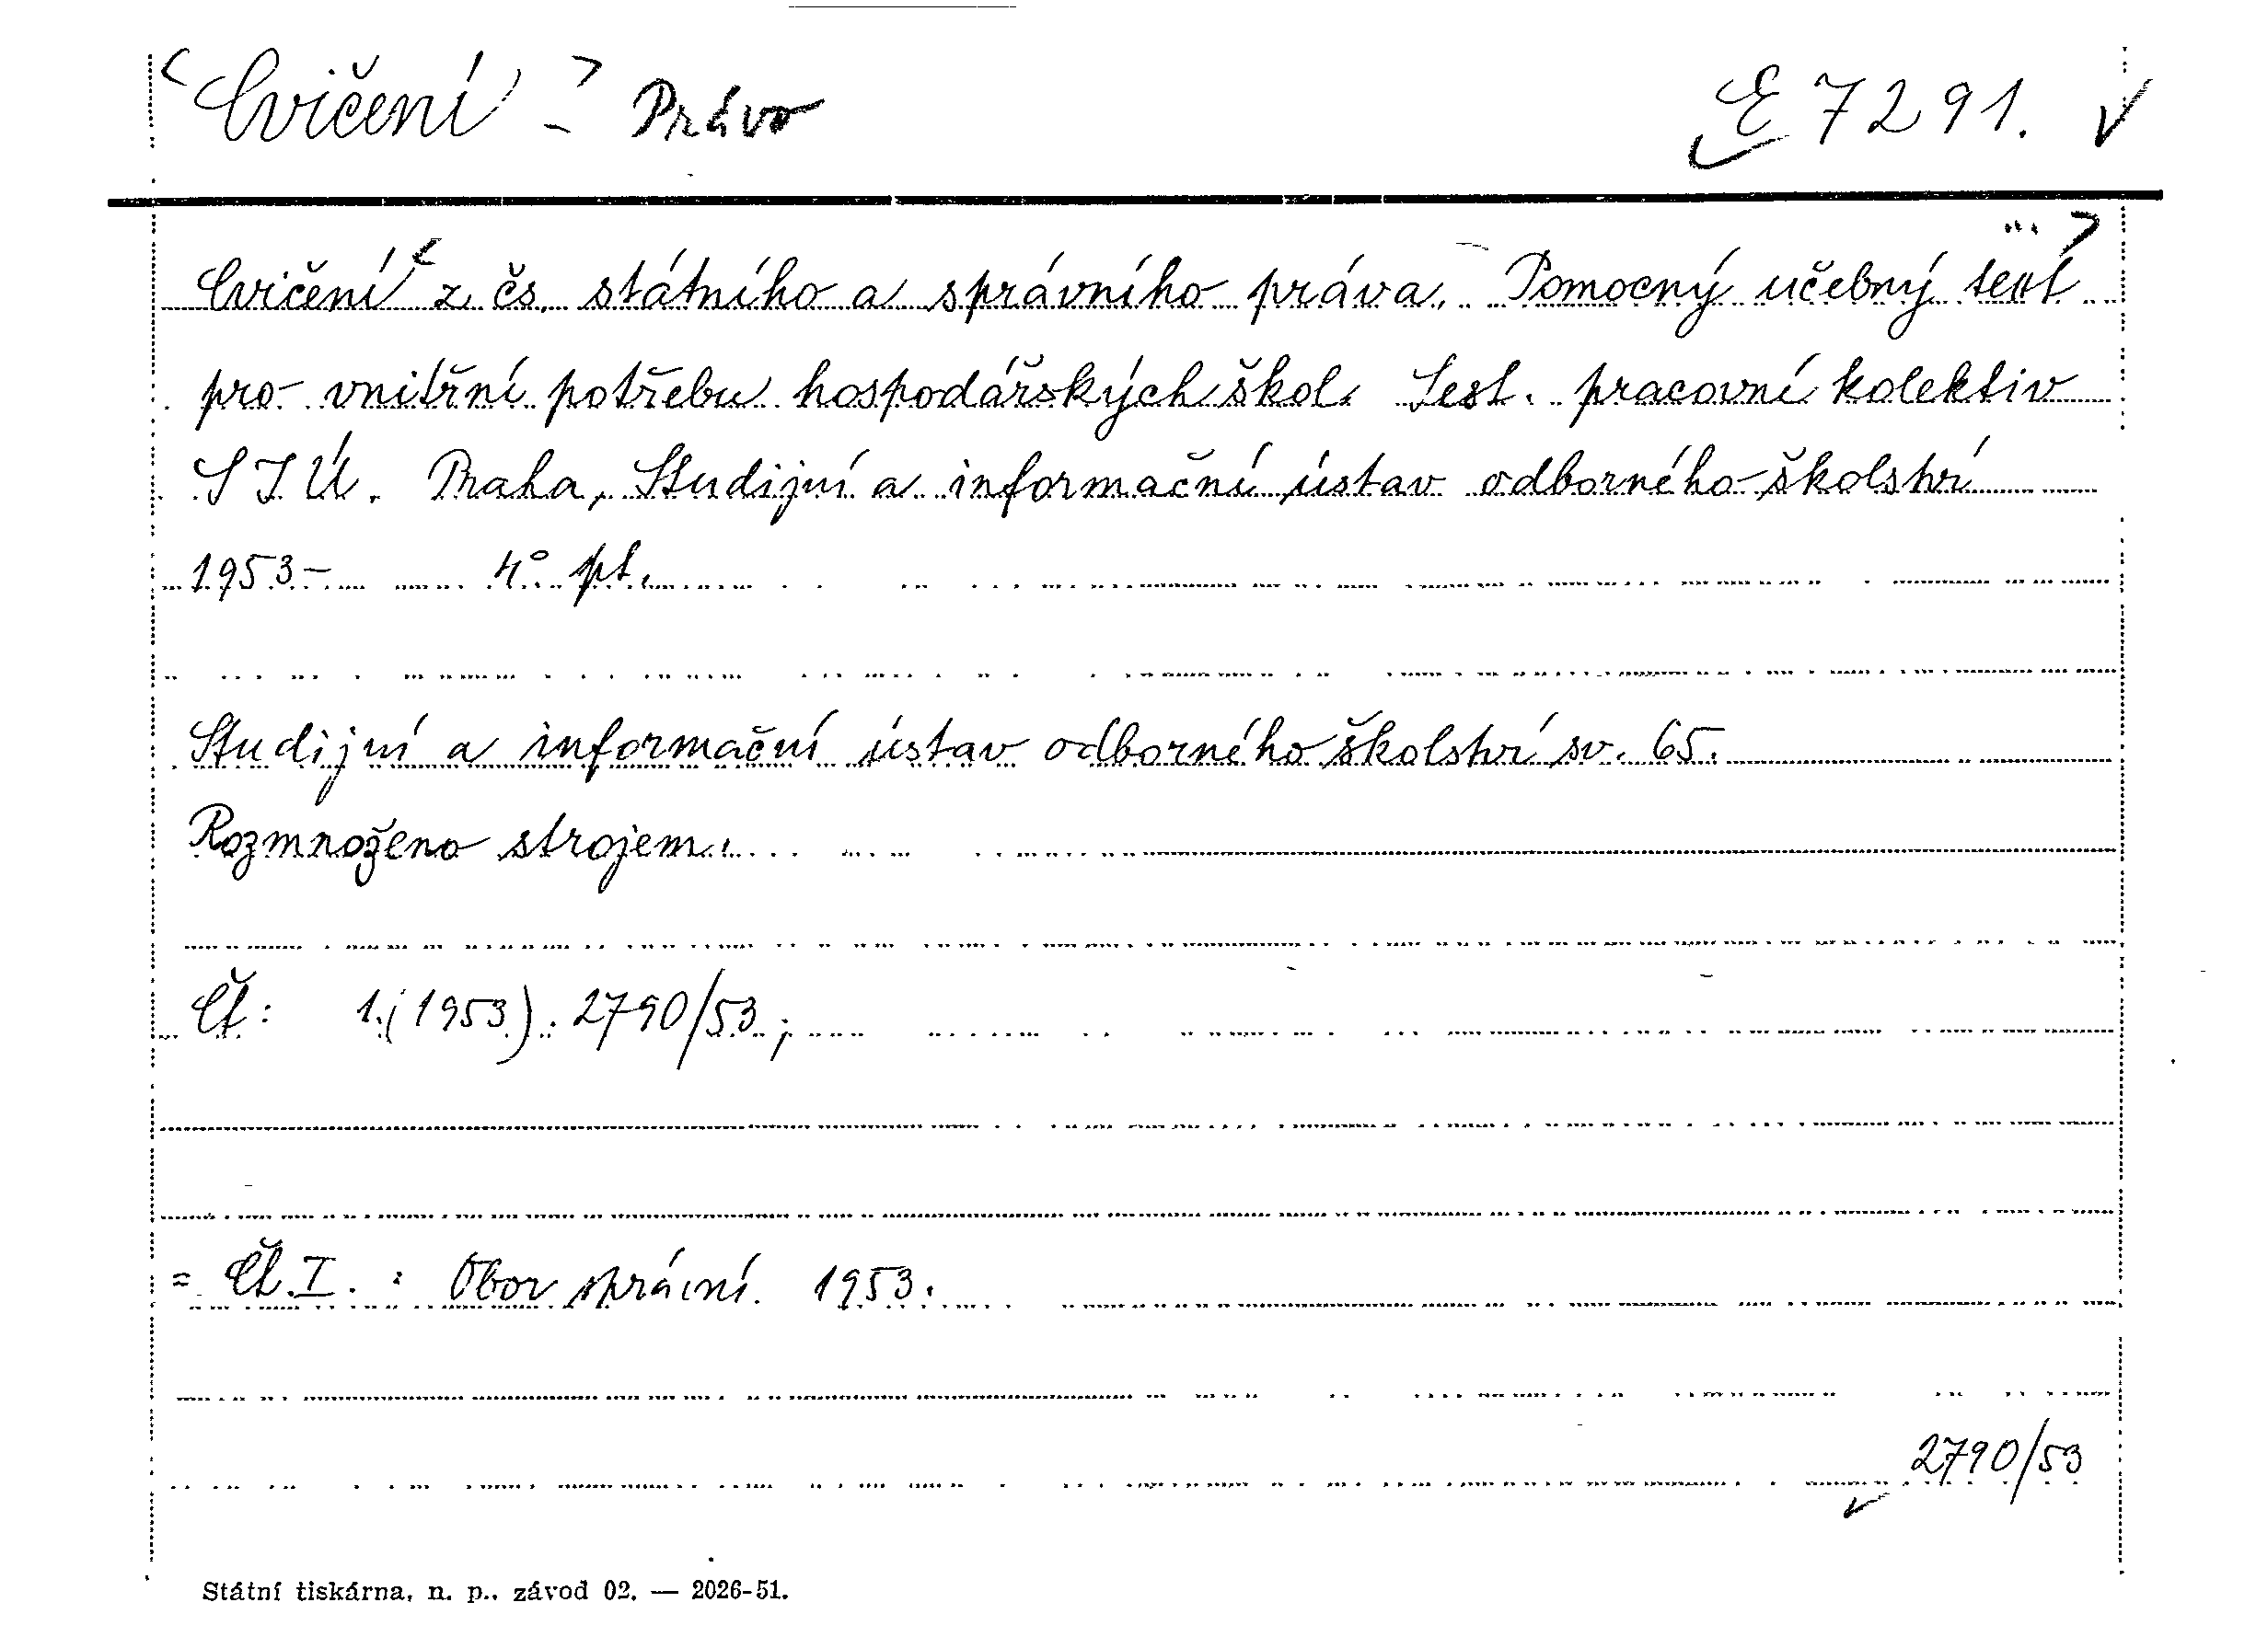 <Cvičení> - Právo E 7291.
Cvičení < z čs. státního a správního práva. Pomocný učebný text ... >
pro vnitřní potřebu hospodářských škol. Sest. pracovní kolektiv
SIÚ. Praha, Studijní a informační ústav odborného školství
1953- 4° pt.
Studijní a informační ústav odborného školství sv. 65.
Rozmnoženo strojem.
Čť: 1.(1953). 2790/53;
= Čť.I. : Obor správní. 1953.
2790/53
Státní tiskárna, n. p., závod 02. — 2026-51.